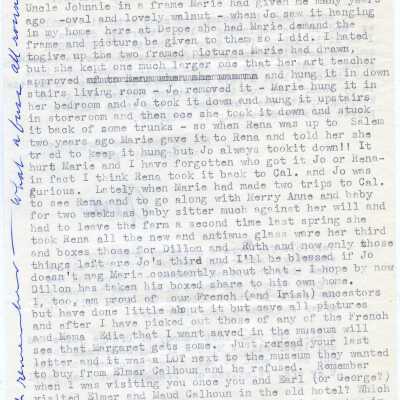 Uncle Johnnie in a frame Marie had given me many years
ago -oval and lovely walnut - when Jo saw it hanging
in my home here at Depoe she had Marie demand the
frame and picture be given to them so I did. I hated
togive up the two framed pictures Marie had drawn,
but she kept one much larger one that her art teacher
approved and hung it in down
stairs living room - Jo removed it - Marie hung it in
her bedroom and Jo took it down and hung it upstairs
in storeroom and then oce she took it down and stuck
it back of some trunks - so when Rena was up to Salem
two years ago Marie gave it to Rena and told her she
tr ed to keep it hung but Jo always tookit down!! It
hurt Marie and I have forgotten who got it Jo or Rena-
in fact I think Rena took it back to Cal. and Jo was
gurious. Lately when Marie had made two trips to Cal.
to see Rena and to go along with Merry Anne and baby
for two weeks as baby sitter much against her will and
had to leave the farm a second time last spring she
took Rena all the new and antiwue glass ware her third
and boxes those for Dillon and Ruth and now only those
things left are Jo's third and I'll be blessed if Jo
doesn't nag Marie constently about that - I hope by now
Dillon has taken his boxed share to his own home.
I, too, am proud of our French (and Irish) ancesters
but have done little about it but save all pictures
and after I have picked out those of any of the French
and Mama Edie that I want saved in the museum will
see that Margaret gets some. Just reread your last
letter and it was a LOT next to the museum they wanted
to buy from Elmer Calhoun and he refused. Remember
when I was visiting you once you and Earl (or George?)
visited Elmer and Maud Calhoun in the old hotel? Which
What a fuss All